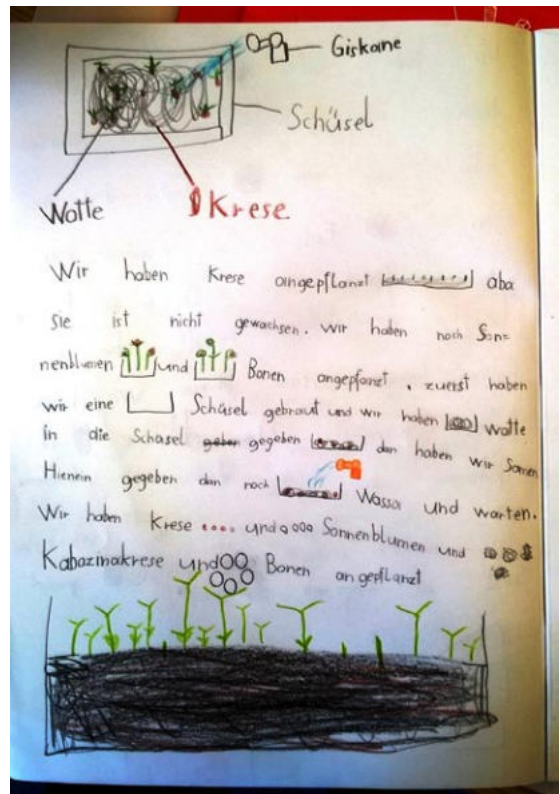 Giskane
Schüsel
Watte
Krese
Wir haben Krese angepflanzt aba
sie ist nicht gewachsen. Wir haben noch Son=
nenblumen und Bonen angepflanzt. zuerst haben
wir eine Schüsel gebraut und wir haben watte
in die Schüsel geber gegeben dan haben wir Samen
Hienein gegeben dan noch Wassa und warten.
Wir haben Krese und Sonnenblumen und
Kabazinakrese und Bonen angepflanzt